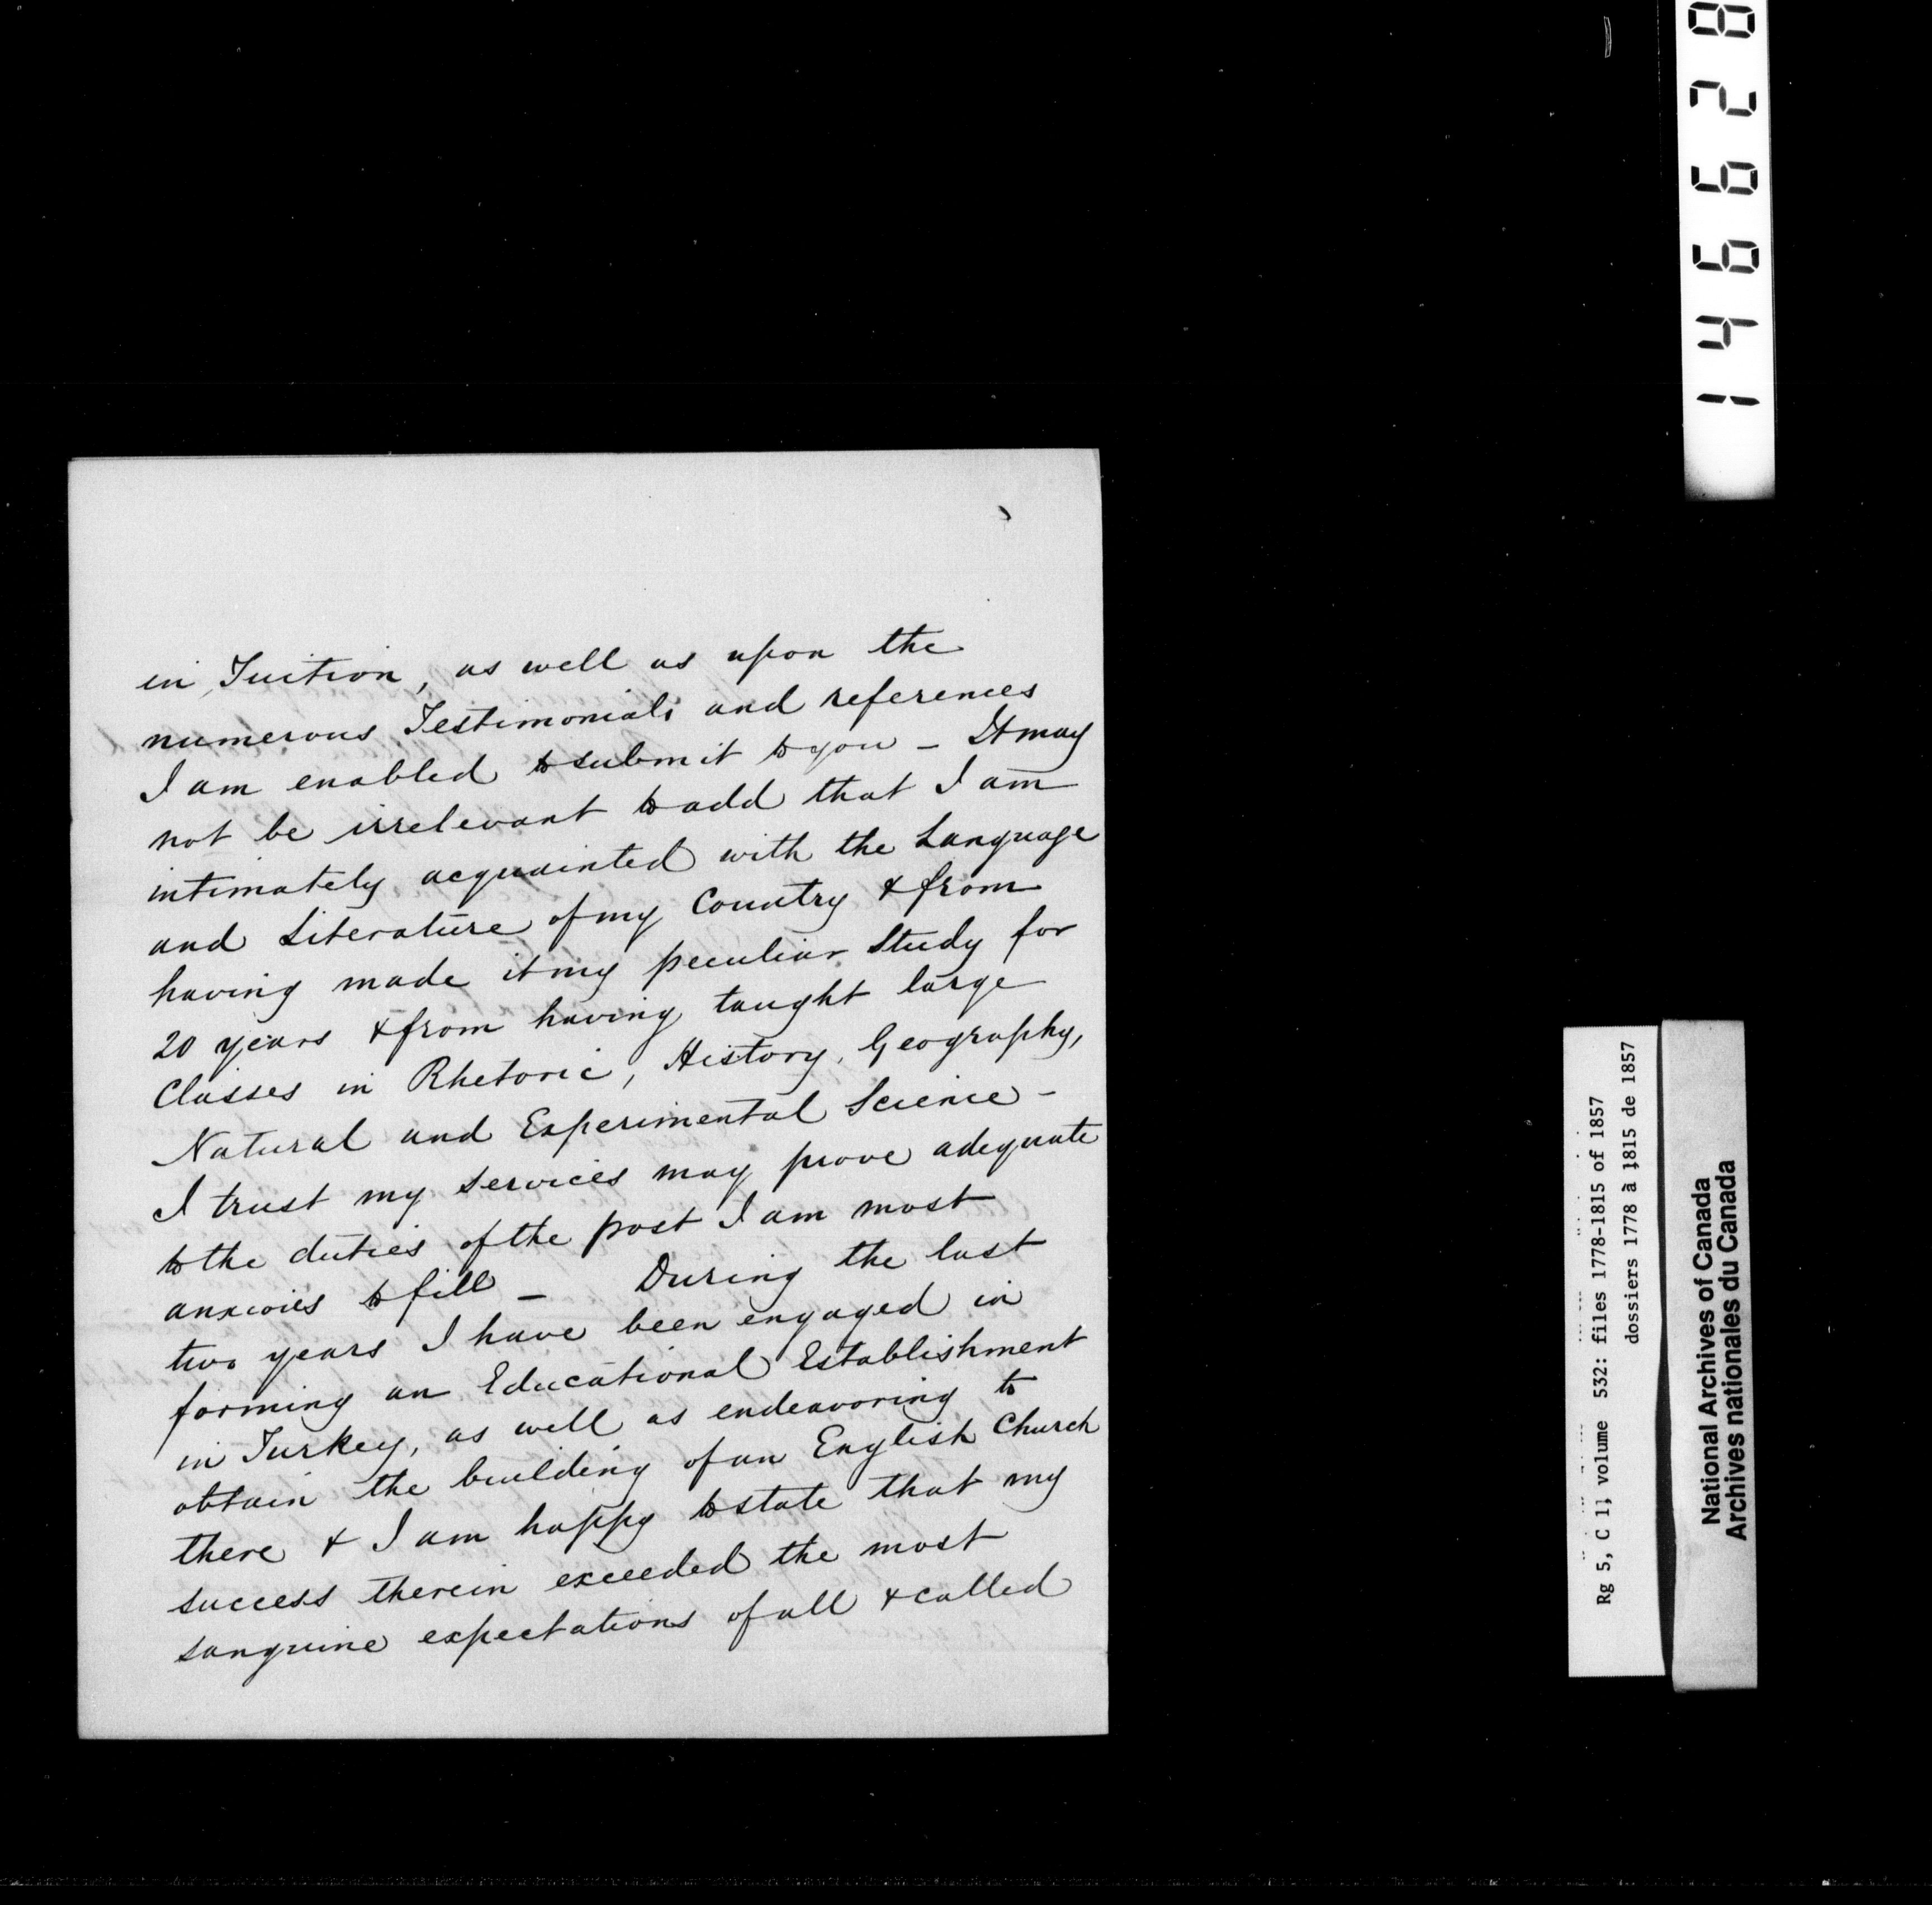 in Tuition, as well as upon the
numerous Testimonials and references
I am enabled to submit to you - It may
not be irrelevant to add that I am
intimately acquainted with the Language
and Literature of my Country & from
having made it my peculiar Study for
20 years & from having taught large
Classes in Rhetoric, History, Geography,
Natural and Experimental Science -
I trust my services may prove adequate
to the duties of the post I am most
anxious to fill - During the last
two years I have been engaged in
forming an Educational Establishment
in Turkey, as well as endeavoring to
obtain the building of an English Church
there & I am happy to state that my
success therein exceeded the most
sanguine expectations of all & called
146628
Rg 5, C 1, volume 532: files 1778-1815 of 1857
dossiers 1778 à 1815 de 1857
National Archives of Canada
Archives nationales du Canada